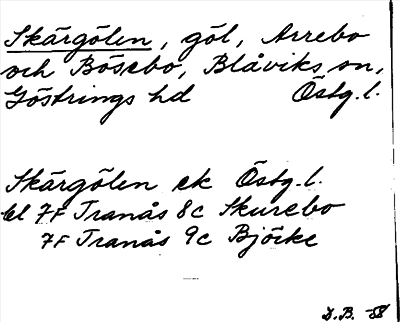 Skärgölen, göl, Arrebo
och Bösebo, Blåviks sn,
Göstrings hd Östg.l.
Skärgölen ek Östg.l.
bl 7F Tranås 8c Skurebo
7F Tranås 9c Bjöcke
D.B. -58